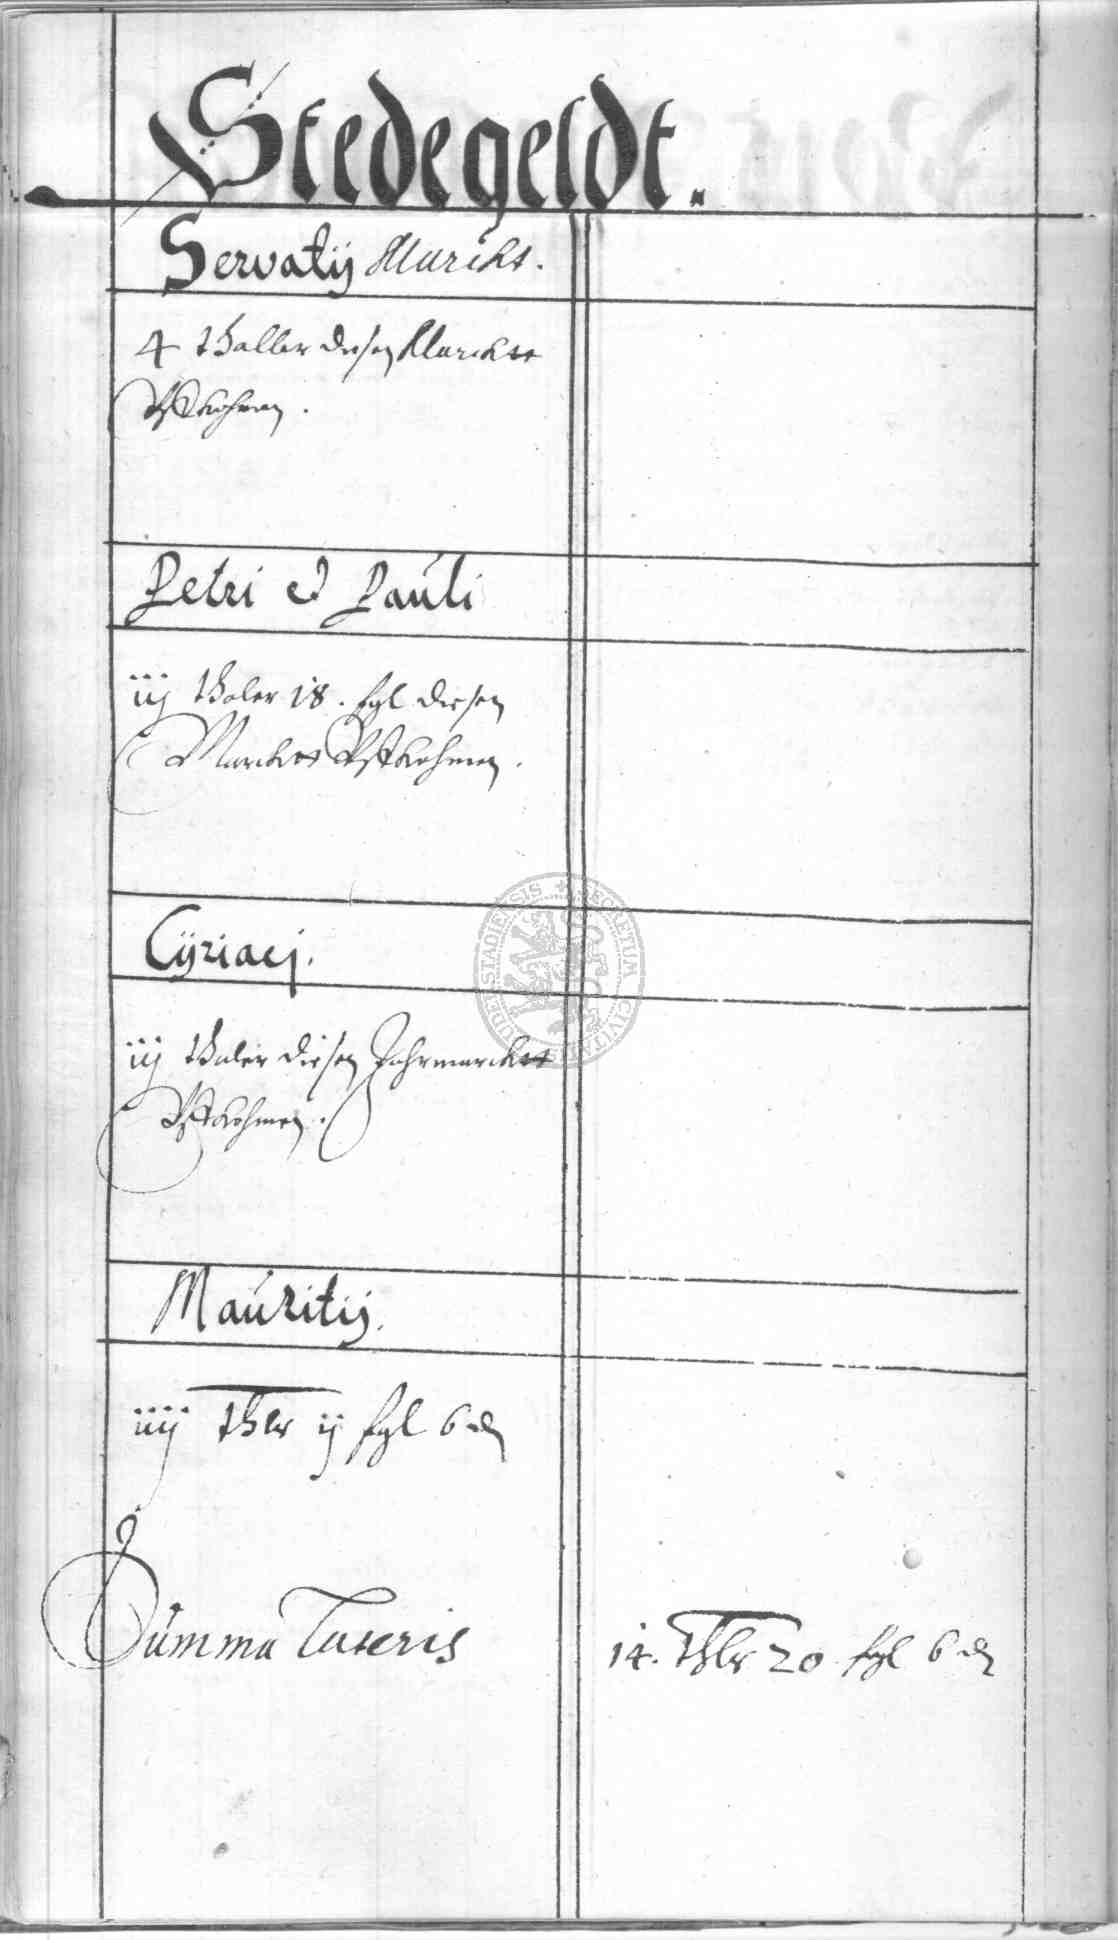 Stedegeldt.
Servatij Marckt.
4 thaller diesen Marckte
Vffkohmen.
Petri et Pauli
iij thaler 18. sgl diesen
Marckte Vffkohmen.
Cÿriacj.
iij thaler diesen Jahrmarckte
Vffkohmen.
Mauritij.
iiij thlr ij sgl 6 d
Summa Lateris
14. Thlr 20 sgl 6 d
SECRETUM CIVITATIS DUDERSTADIENSIS